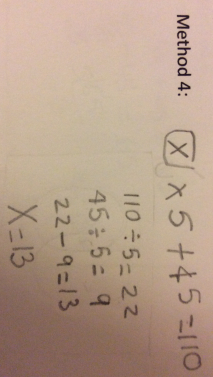 Method 4:
X × 5 + 45 = 110
110 ÷ 5 = 22
45 ÷ 5 = 9
22 - 9 = 13
X = 13